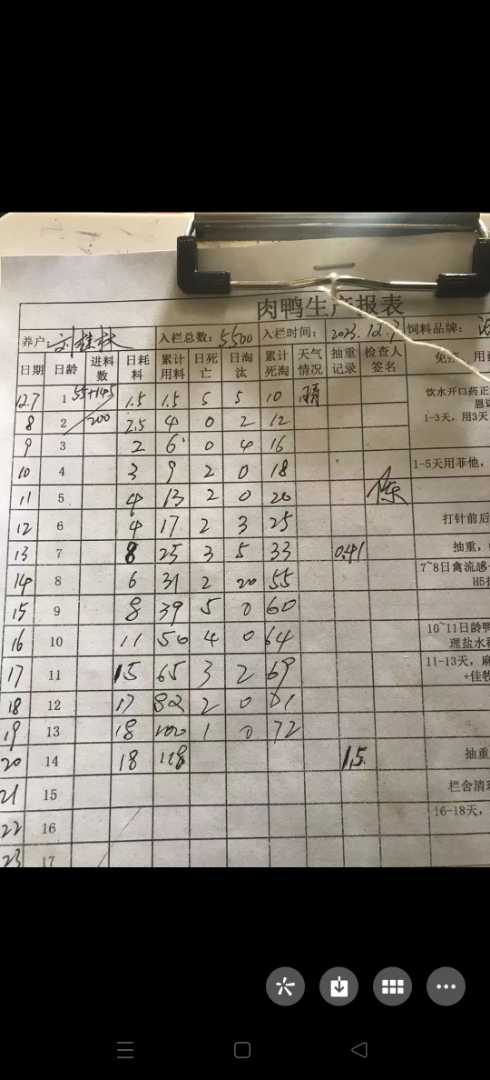 肉鸭生产报表
养户 入栏总数: 5500 入栏时间: 2023.12.7 饲料品牌:
日期 日龄 进料数 日耗料 累计用料 日死亡 日淘汰 累计死淘 天气情况 抽重记录 检查人签名 免 用
12.7 1 55+145 1.5 1.5 5 5 10 晴 饮水开口药正
8 2 200 2.5 4 0 2 12 1-3天，用3天
9 3 2 6 0 4 16
10 4 3 9 2 0 18 1-5天用菲他，
11 5 4 13 2 0 20 陈
12 6 4 17 2 3 25 打针前后
13 7 8 25 3 5 33 0.41 抽重，
14 8 6 31 2 20 55 7~8日禽流感 H5
15 9 8 39 5 0 60
16 10 11 50 4 0 64 10~11日龄鸭 理盐水
17 11 15 65 3 2 69 11-13天，麻 +佳牧
18 12 17 82 2 0 71
19 13 18 100 1 0 72
20 14 18 118 1.5 抽重
21 15 栏舍清
22 16 16-18天，
23 17